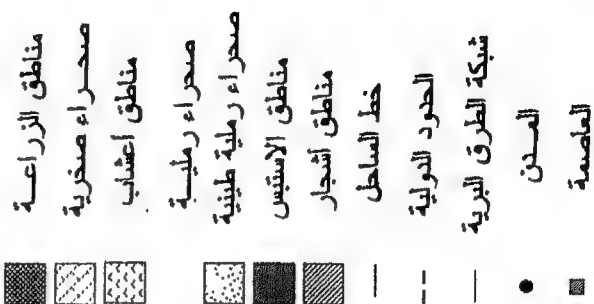 مناطق الزراعـــة
صحـــراء صخرية
مناطق أعشاب
صحراء رمليـــة
صحراء رملية طينية
مناطق الاستبس
مناطق أشجار
خط الساحل
الحدود الدولية
شبكة الطرق البرية
المـــدن
العاصمة